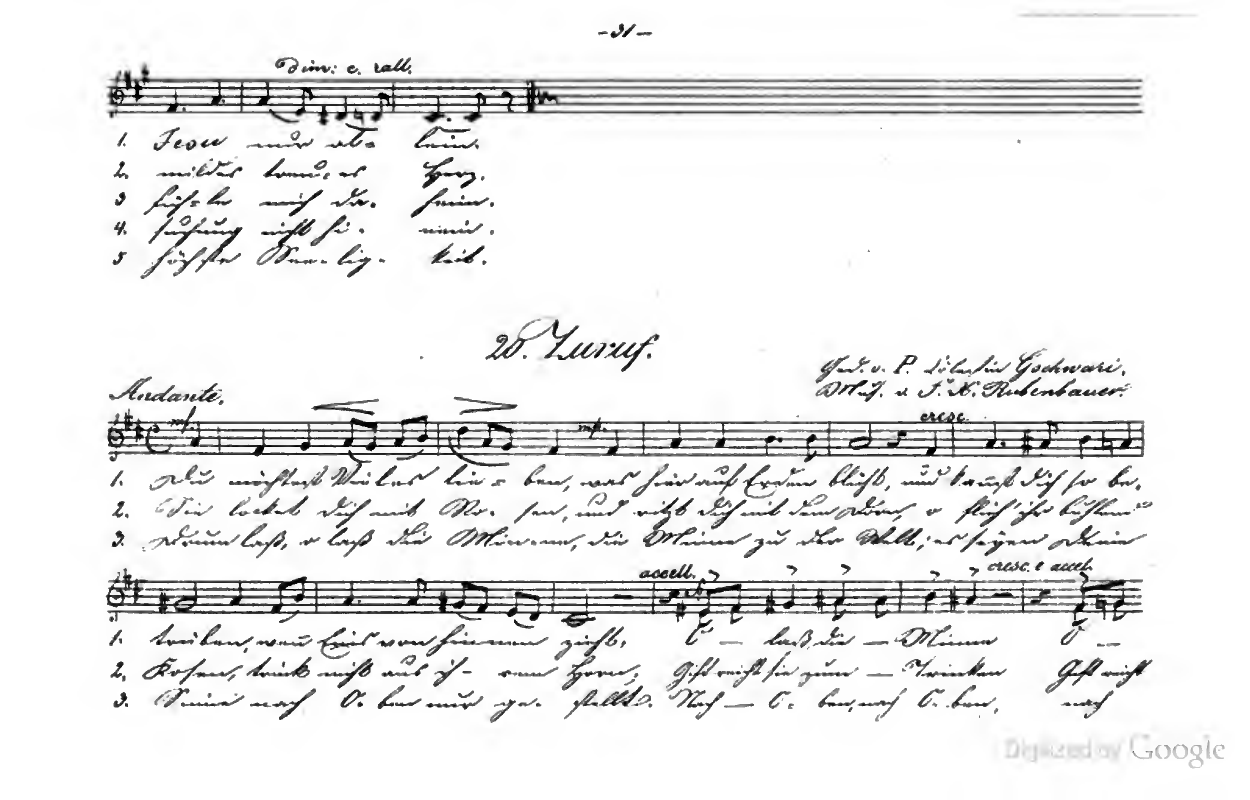 -31-
Dim: e. rall.
1. Jesu nur al- lein.
2. mildes treu-es Herz.
3 füh-le mich da- heim.
4. suchung nicht hi- nein.
5 höchste See-lig- keit.
20. Zuruf.
Ged. v. P. Cölestin Gschwari.
Mus. v. J. N. Rubenbauer.
Andante.
mf. mf. cresc.
1. Du möchtest Vieles lie- ben, was hier auf Erden blüht, und kannst dich so be-
2. Sie locket dich mit Ro- sen, und ritzt dich mit dem Dorn, o flieh' ihr
3. Drum laß, o laß die Min-ne, die Minne zu der Welt; es seyen Deine
accell. cresc. e accel.
1. trüben, wenn Eins von hinnen zieht. O — laß die — Minne O —
2. Kosen, trink nicht aus ih- rem Horn; Gift reicht sie zum — Trinken Gift reicht
3. Sinne nach O- ben nur ge- stellt. Nach — O- ben, nach O-ben, nach
Digitized by Google